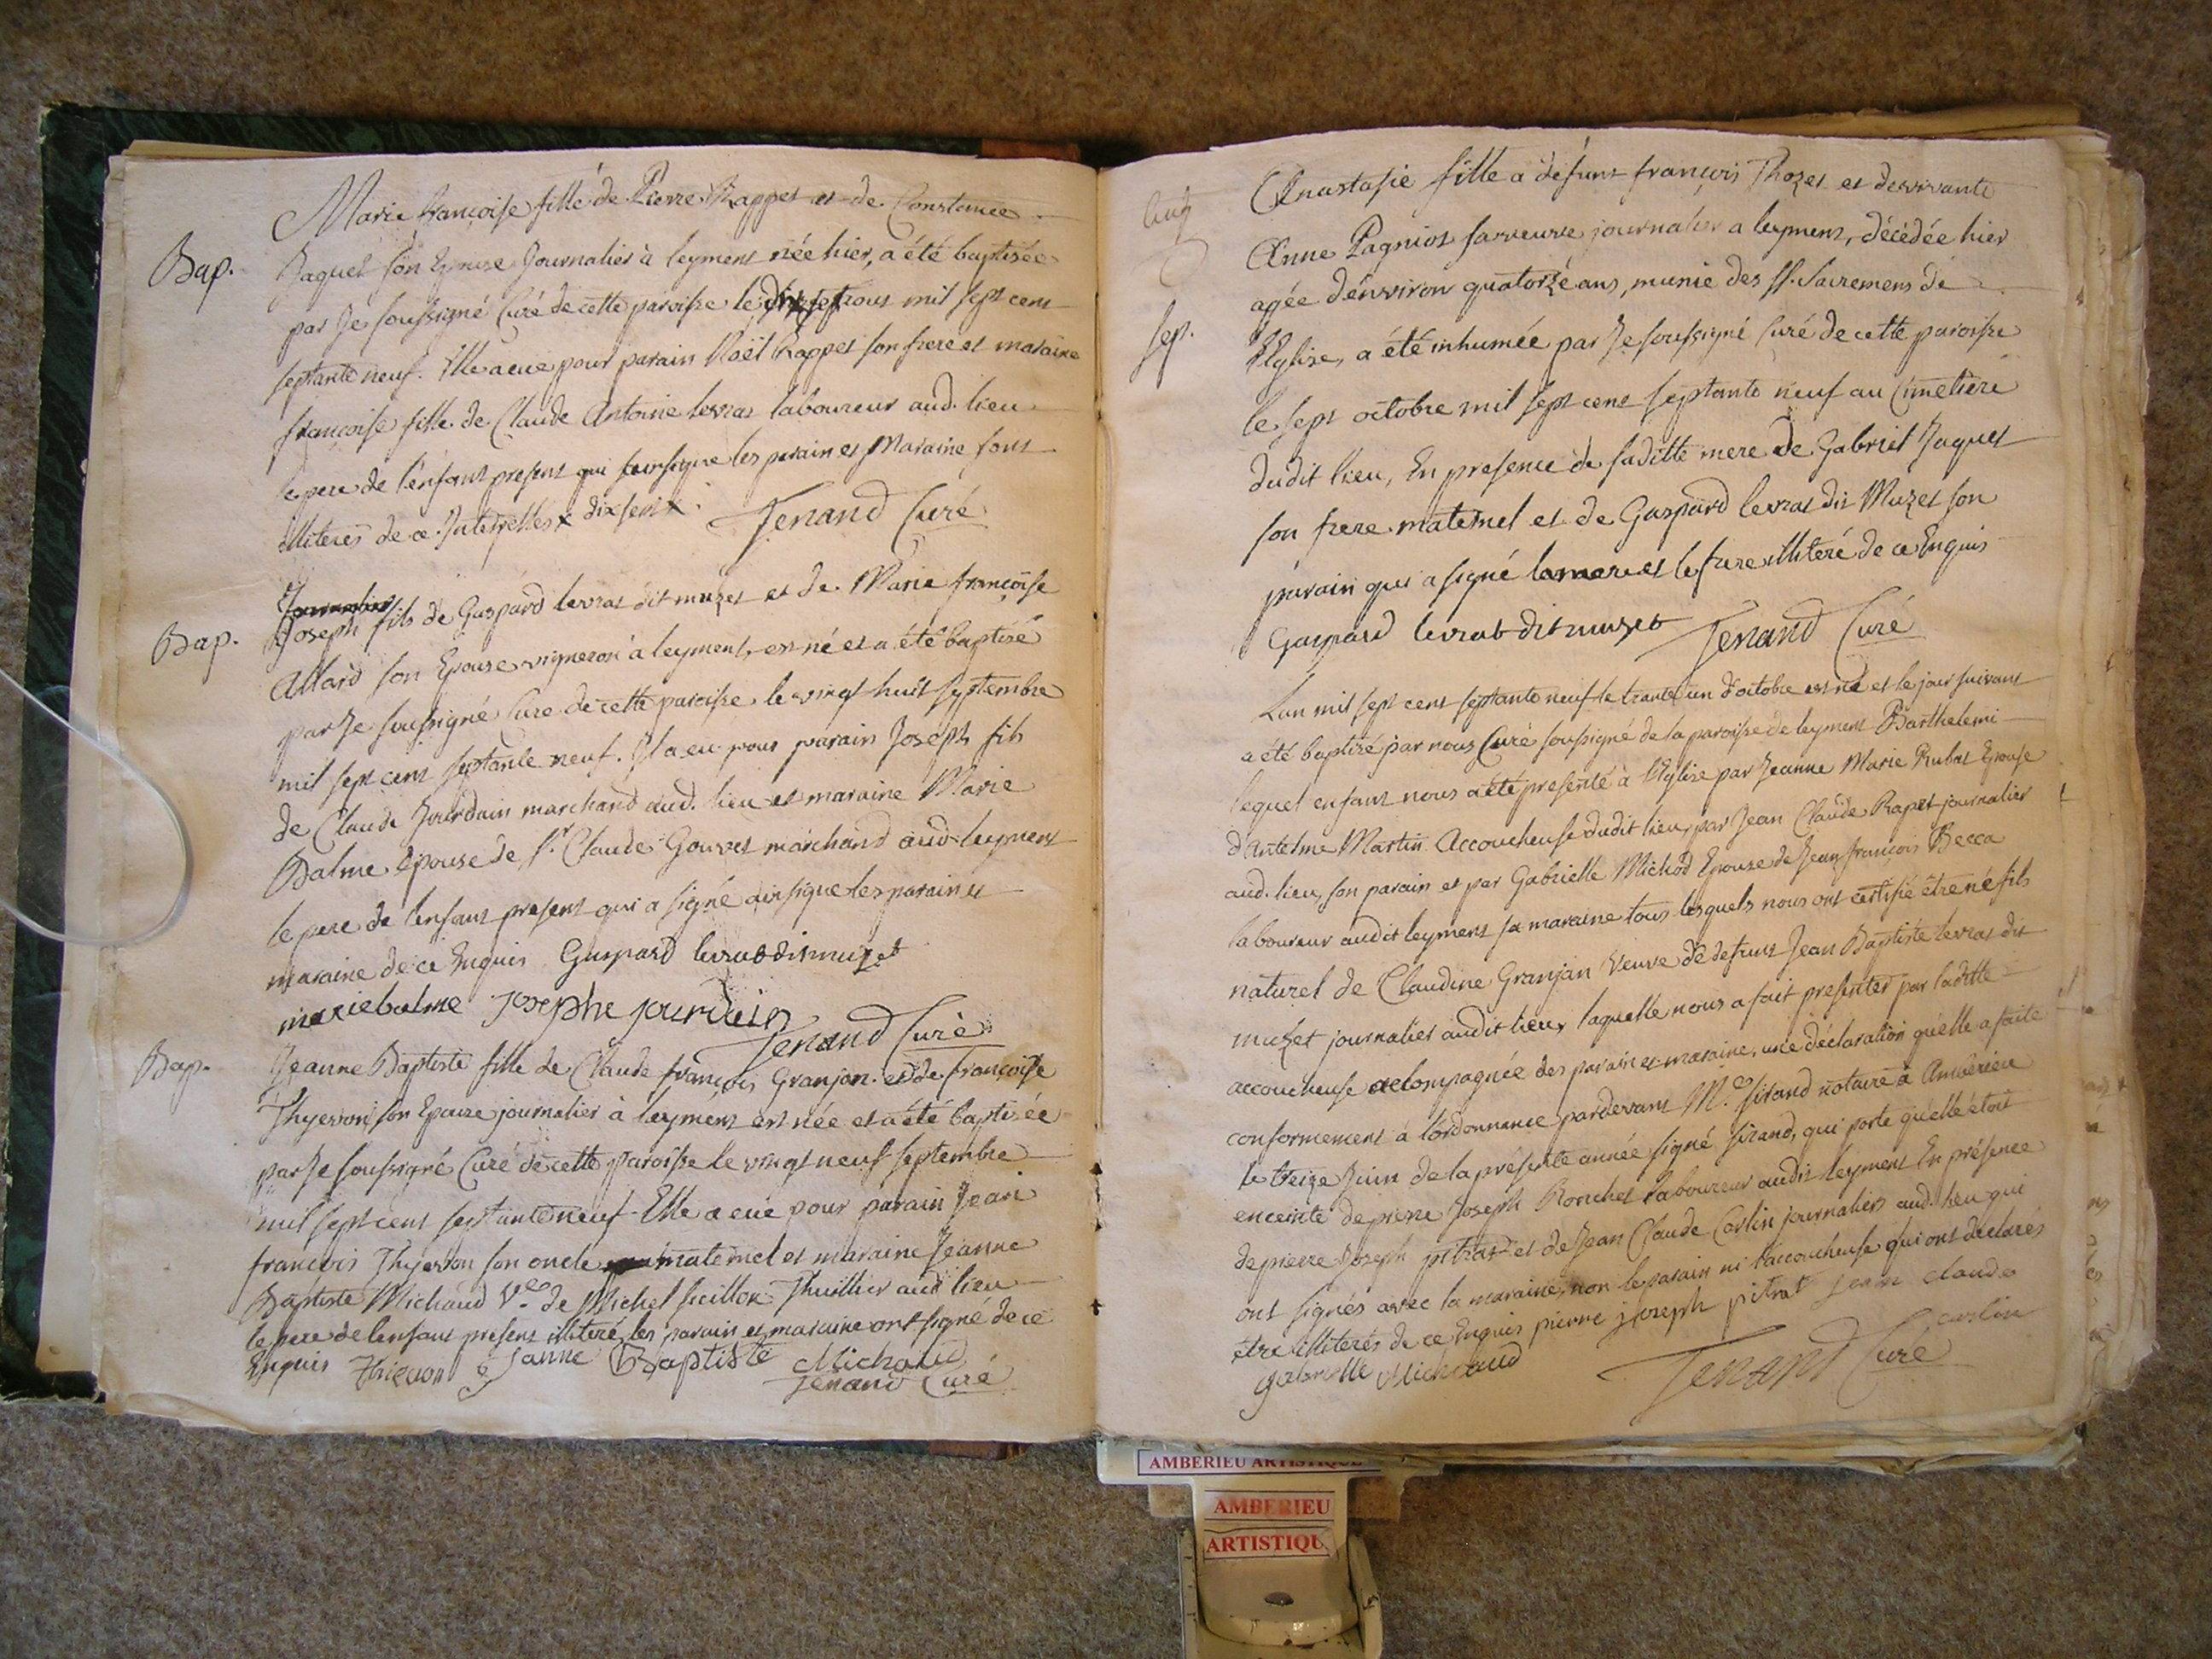 Marie françoise fille de Pierre Rappet et de Constance
Bap. Jaquet son Epouse Journalier à leyment née hier, a été baptisée
par Je soussigné Curé de cette paroisse le aout mil sept cent
septante neuf. Elle a eue pour parain Noël Rappet son frere et maraine
françoise fille de Claude Antoine levrat laboureur aud. lieu
le pere de l'enfant present qui les parain et Maraine sont
illiterés de ce Interpellés x dix sept x. Jenand Curé
Joseph fils de Gaspard levrat dit muzet et de Marie françoise
Bap. Allard son Epouse vigneron à leyment, est né et a été baptisé
par Je soussigné Cure de cette paroisse le vingt huit septembre
mil sept cent septante neuf. Il a eu pour parain Joseph fils
de Claude Jourdain marchand aud. lieu et maraine Marie
Balme épouse de Sr. Claude Gouvet marchand aud. leyment
le pere de l'enfant present qui a signé ainsi que les parain et
maraine de ce Enquis Gaspard levrat dit muzet
marie balme Josephe jourdain
Jenand Curé
Bap. Jeanne Baptiste fille de Claude françois Granjan et de françoise
Thyevon son Epouse journalier à leyment est née et a été baptisée
par Je soussigné Curé de cette paroisse le vingt neuf septembre
mil sept cent septante neuf. Elle a eüe pour parain Jean
francois Thyevon son oncle maternel et maraine Jeanne
Baptiste Michaud Ve. de Michel Thuillier aud lieu
le pere de lenfant present illiteré, les parain et maraine ont signé de ce
Enquis Thievon Janne Baptiste Michaud
Jenand Curé
Anastasie fille a défunt françois Thozet et de vivante
Anne Pagniot sa veuve journalier a leyment, décédée hier
agée d'environ quatorze ans, munie des SS. Sacremens de
Sep. l'Eglise, a été inhumée par Je soussigné Curé de cette paroisse
le sept octobre mil sept cent septante neuf au Cimetière
dudit lieu, En presence de saditte mere de Gabriel Jaquet
son frere maternel et de Gaspard levrat dit Muzet son
parain qui a signé la mere et le frere illiteré de ce Enquis
Gaspard levrat dit muzet Jenand Curé
Lan mil sept cent septante neuf le trante un d'octobre est né et le jour suivant
a été baptizé par nous Curé soussigné de la paroisse de leyment Barthelemi
lequel enfant nous a été presenté à l'Eglise par Jeanne Marie Rubat Epouse
d'Antelme Martin Accoucheuse dudit lieu, par Jean Claude Rapet journalier
aud. lieu, son parain et par Gabrielle Michod Epouse de Jean françois Becca
laboureur audit leyment sa maraine tous lesquels nous ont certifié être né fils
naturel de Claudine Granjan Veuve de defunt Jean Baptiste levrat dit
muzet journalier audit lieu, laquelle nous a fait presenter par laditte
accoucheuse accompagnée des parain et maraine, une déclaration qu'elle a faite
conformement à l'ordonnance pardevant Me. Sirand notaire à Ambérieu
le treize Juin de la présente année signé Sirand, qui porte qu'elle étoit
enceinte de pierre Joseph Ronchet laboureur audit leyment En présence
de pierre Joseph pitrat et de Jean Claude Carlin journaliers aud. lieu qui
ont signés avec la maraine, non le parain ni l'accoucheuse qui ont declarés
être illiterés de ce Enquis pierre joseph pitrat Jean claude
carlin
gabrielle Michaud Jenand Curé
AMBERIEU ARTISTIQUE
AMBERIEU
ARTISTIQU